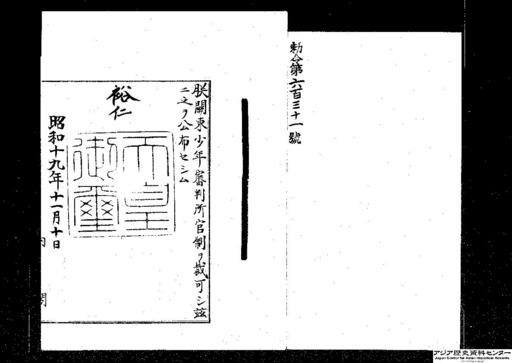 勅令第六百三十一號
朕關東少年審判所官制ヲ裁可シ茲
ニ之ヲ公布セシム
裕仁
天皇
御璽
昭和十九年十一月十日
内閣
アジア歴史資料センター
Japan Center for Asian Historical Records